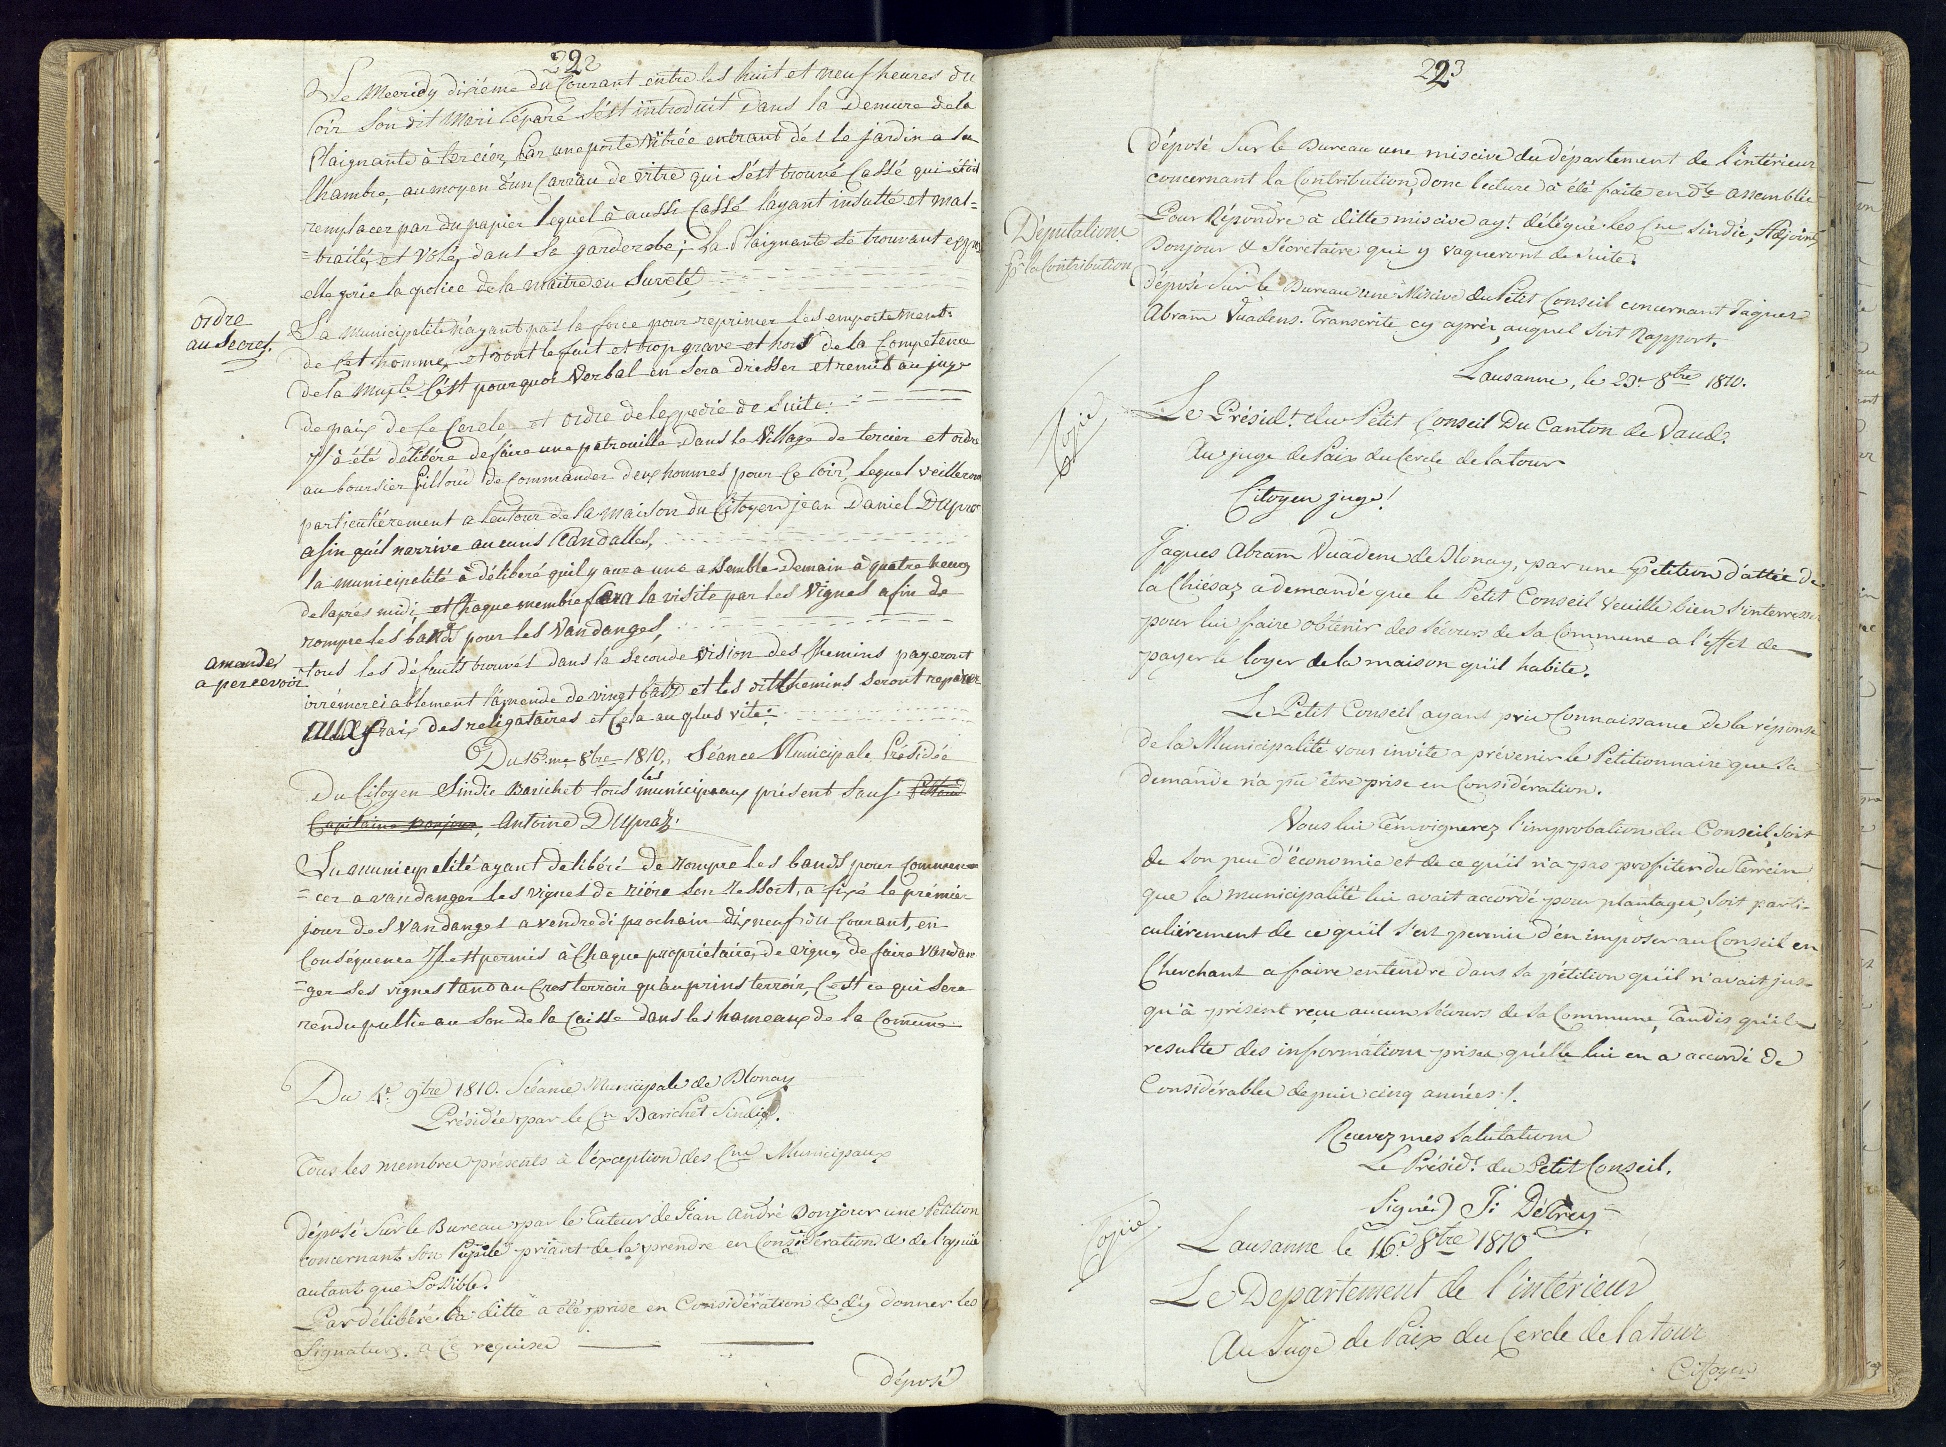 222
Le Mecridy dixième du Courant entre les huit et neuf heures du
soir son dit Mari séparé s'est introduit dans la demure de la
Plaignante à tercier, Par une porte vitrée entrant dès le jardin a sa
Chambre, au moyen d'un Carrau de vitre qui s'est trouvé Cassé qui étoit
remplacer par du papier lequel à aussi Cassé l'ayant insulté et mal=
=traité, et volé, dans sa garderobe; La Plaignante se trouvant
elle prie la police de la maitre en sureté
ordre
au Secret.
La municipalité n'ayant pas la force pour reprimer les emportement
de cet homme, et dont le fait et trop grave et hors de la Competence
de la Mup.té C'est pourquoi Verbal en sera dresser et remit au juge
de paix de ce Cercle et ordre de lexpedié de suite.
Il à été délibéré de faire une patrouille dans le Village de tercier et ordre
au boursier Pilloud de Commander deux hommes pour Ce soir, lequel veilleron
particulièrement a lentour de la maison du Citoyen jean Daniel Dupra
afin quil narrive aucuns scandalles,
la municipalité à délibéré quil y aura une assemblé Demain à quatre heures
de laprés midi, et Chaque membre fera la visite par les Vignes afin de
rompre les bands pour les Vandanges,
amandes
a percevoir
tous les défauts trouvés dans la seconde vision des Chemins payeront
irrémerciablement l'amende de vingt batz et les dit Chemins seront reparer
aux frais des religataires et Cela au plus vite.
Du 16.me 8bre 1810, Séance Municipale Présidée
Du Citoyen Sindic Barichet tous les municipaux présent Sauf
Capitaine Bonjour, Antoine Dupraz.
La municipalité ayant délibéré de rompre les bands pour Commen=
=cer a vandanger les vignes de riére son ressort, a fixé le prémier
jour des Vandanges a vendredi prochain dixneuf du Courant, en
Conséquence Il est permis à Chaque propriétaires de vignes de faire Vandan
=ger ses vignes tand au Cros terroir qu'au prins terroir, C'est ce qui sera
rendu public au son de la Caisse dans les hameaux de la Commune
Du 4e 9bre 1810. Séance Municipale de Blonay
Présidée par le Cn Barichet Sindic.
Tous les membres présents à l'éxception des Cns Municipaux
déposé Sur le Bureau par le Tuteur de Jean André Bonjour une Pétition
concernant Son Pupile priant de la prendre en Considération & de l'apuié
autant que Possible.
Par délibéré la ditte a été prise en Considération & d'y donner les
Signatures a Ce requise
déposé
223
déposé Sur le Bureau une miscive du département de l'intérieur
concernant la Contribution, donc lecture à été faite en dte assemblée
Députations
pr la Contribution
Pour Répondre à ditte miscive ayt délégué les Cns Sindic, Adjoint
Bonjour & Sécrétaire qui y vaqueront de Suite.
déposé Sur le Bureau une Miscive du Petit Conseil concernant Jaques
Abram Vuadens. Transcrite cy après, auquel soit Rapport.
Lausanne, le 23e 8bre 1810.
Copie
Le Présidt. du Petit Conseil Du Canton de Vaud,
Au juge de Paix du Cercle de la tour
Citoyen juge!
Jaques Abram Vuadens de Blonay, par une Pétition d'attée de
la Chiésaz a demandé que le Petit Conseil veuille bien s'interresser
pour lui faire obtenir des sécours de sa Commune a l'effet de
payer le loyer de la maison qu'il habite.
Le Petit Conseil ayant pris Connaissance de la réponse
de la Municipalité vous invite a prévenir le Pétitionnaire que sa
demande n'a pu être prise en Considération.
Vous lui témoignerez l'improbation du Conseil, soit
de son peu d'économie et de ce qu'il n'a pas profiter du Terrein
que la municipalité lui avait accordé pour plantager, soit parti-
culièrement de ce qu'il s'est permis d'en imposer au Conseil en
Cherchant a faire entendre dans sa pétition qu'il n'avait jus-
qu'à présent reçu aucun sécours de sa Commune, Tandis qu'il
resulte des informations prises qu'elle lui en a accordé de
Considérables depuis cinq années.!
Recevez mes Salutations
Le Présidt. du Petit Conseil,
Signé) J: DéTrey
Copie
Lausanne le 16e 8bre 1810
Le Departement de l'intérieur
Au Juge de Paix du Cercle de la tour
Citoyen